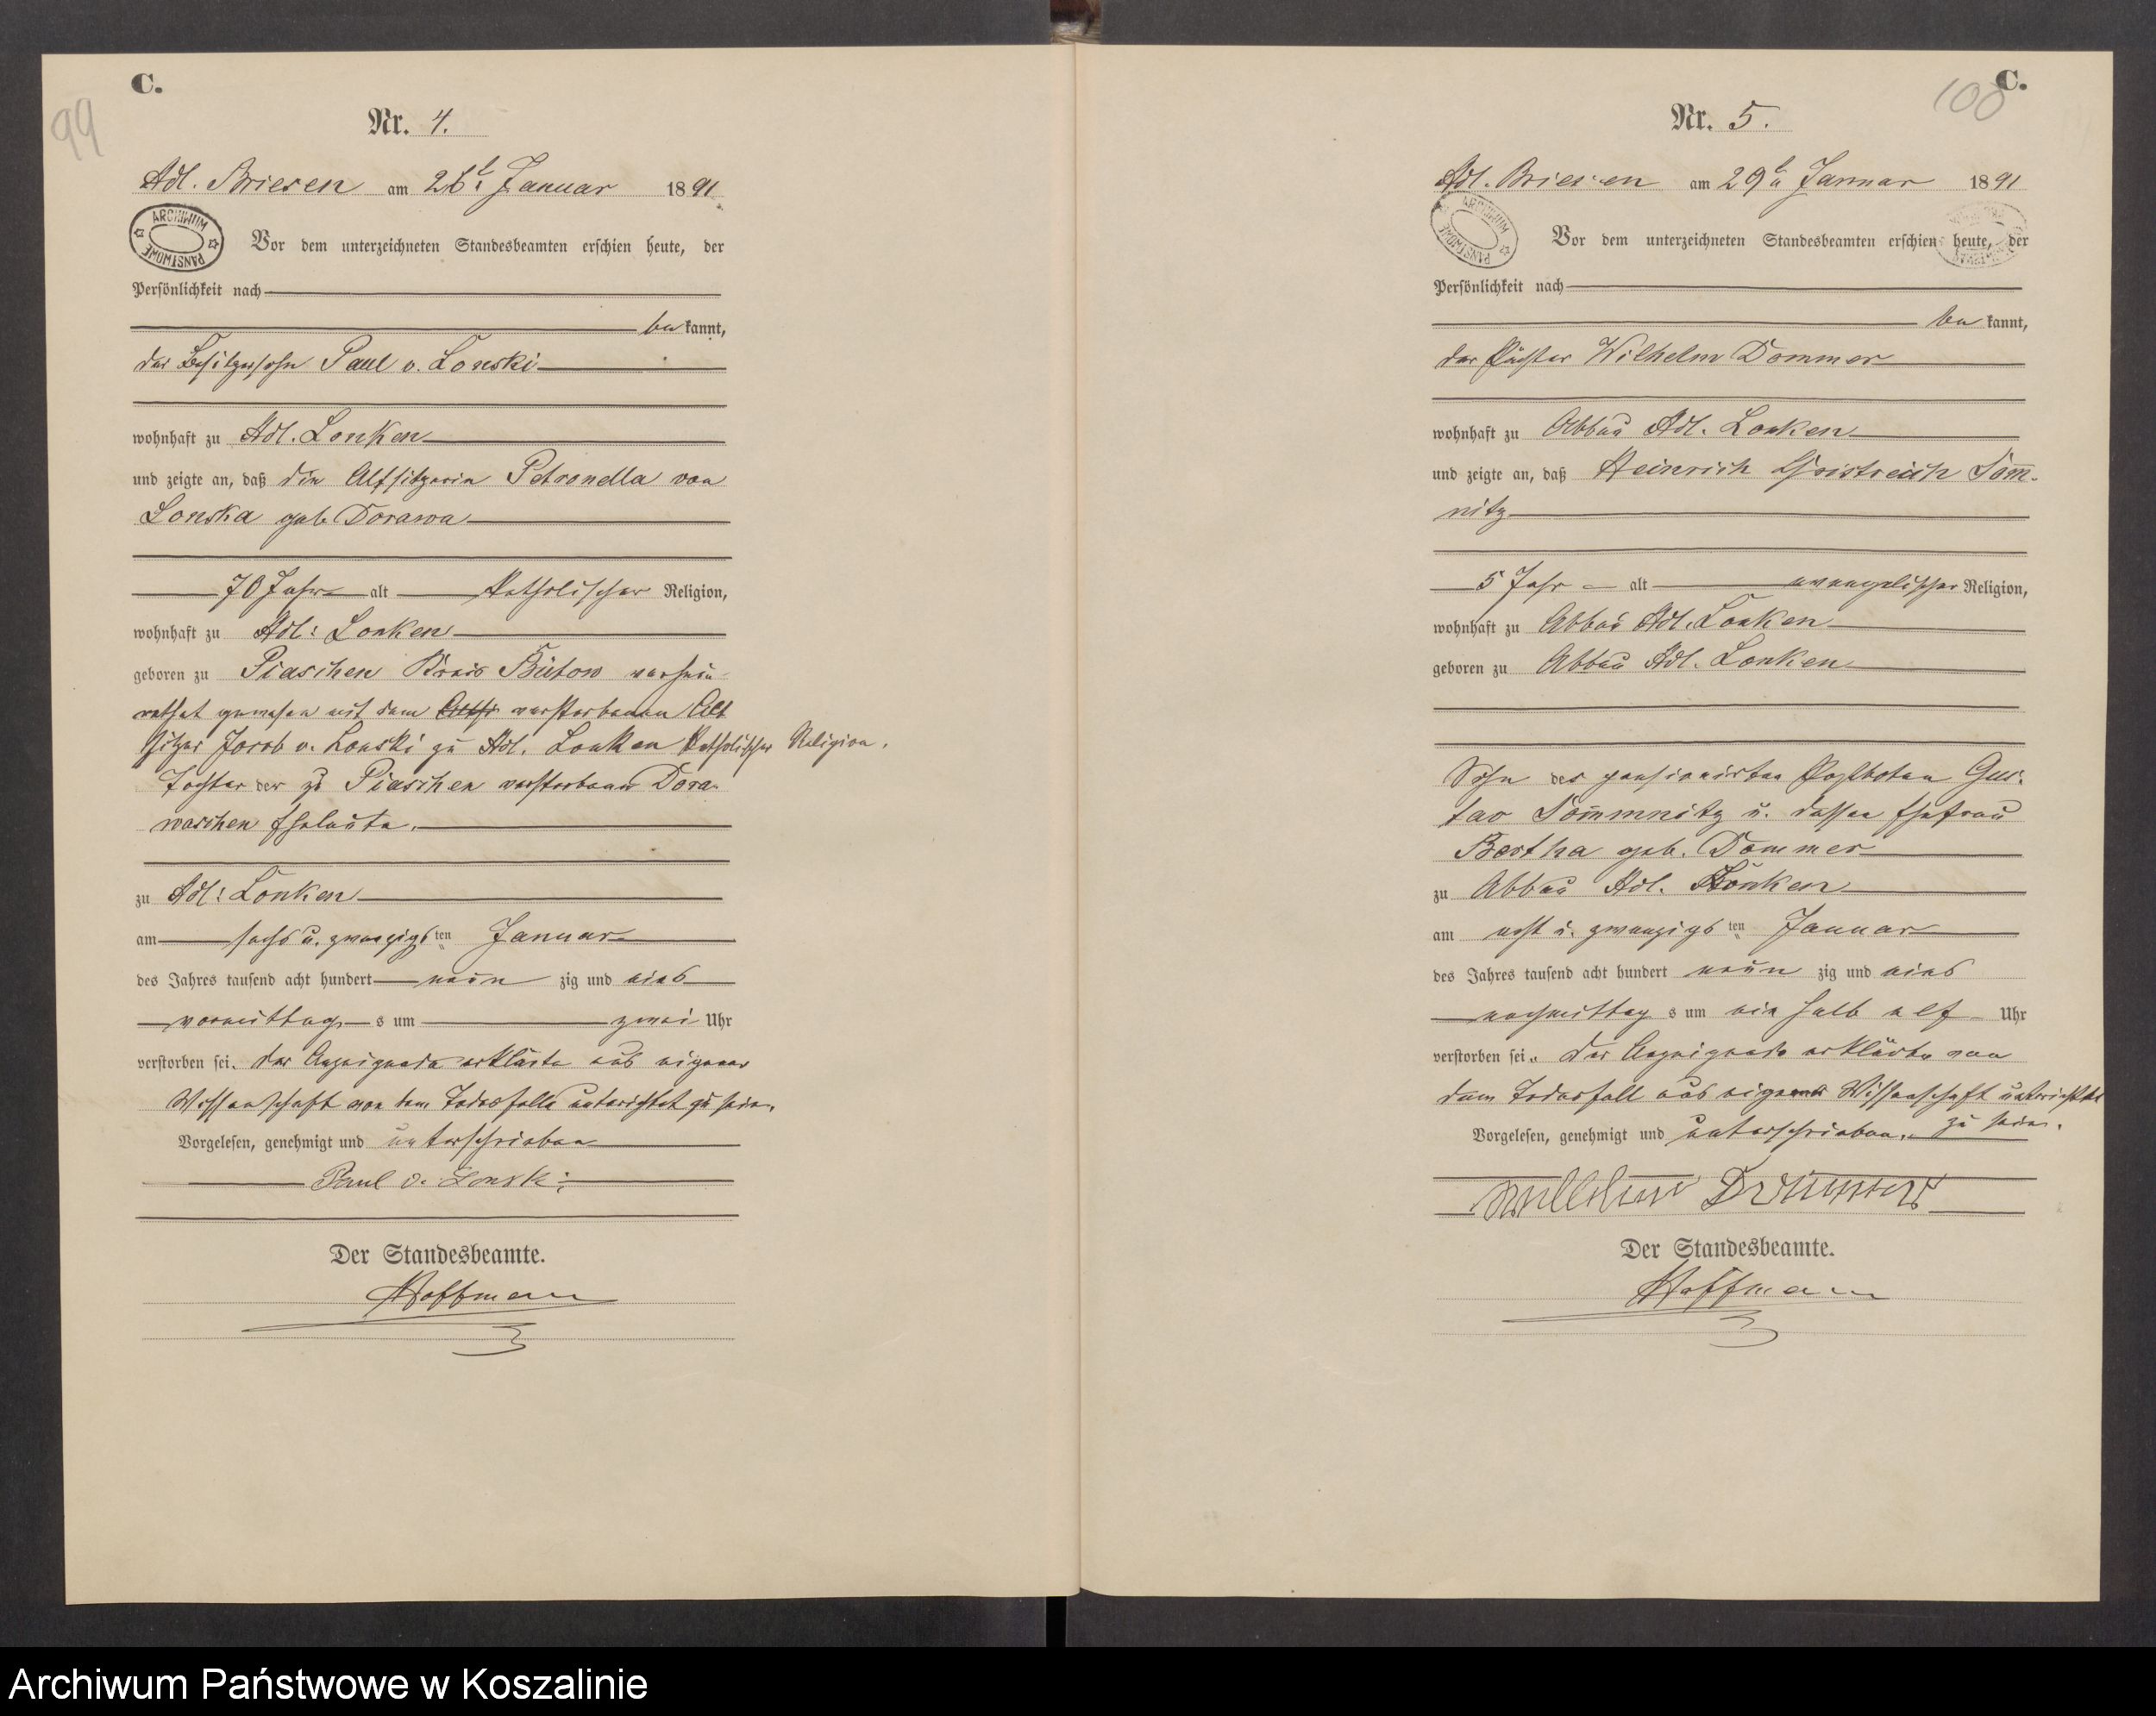 C.
99
Nr. 4.
Adl. Briesen am 26t Januar 1891
ARCHIWUM PAŃSTWOWE
Vor dem unterzeichneten Standesbeamten erschien heute, der
Persönlichkeit nach
be kannt,
der Besitzersohn Paul v. Lonski
wohnhaft zu Adl. Lonken
und zeigte an, daß die Altsitzerin Petronella von
Lonska geb. Dorawa
70 Jahre alt Katholischer Religion,
wohnhaft zu Adl: Lonken
geboren zu Piaschen Kreis Bütow verhei-
rathet gewesen mit dem verstorbenen Alt
sitzer Jacob v. Lonski zu Adl. Lonken Katholischer Religion.
Tochter der zu Piaschen verstorbenen Dora-
waschen Eheleute.
zu Adl: Lonken
am sechs u. zwanzigs ten Januar
des Jahres tausend acht hundert neun zig und eins
vormittag s um zwei Uhr
verstorben sei. Der Anzeigende erklärte aus eigener
Wissenschaft von dem Todesfalle unterrichtet zu sein.
Vorgelesen, genehmigt und unterschrieben
Paul v. Lonski
Der Standesbeamte.
Hoffmann
C.
100
Nr. 5.
Adl. Briesen am 29t Januar 1891
ARCHIWUM PAŃSTWOWE
Vor dem unterzeichneten Standesbeamten erschien heute, der
Persönlichkeit nach
be kannt,
der Pächter Wilhelm Dommer
wohnhaft zu Abbau Adl. Lonken
und zeigte an, daß Heinrich Sömm-
nitz
5 Jahr alt evangelischer Religion,
wohnhaft zu Abbau Adl. Lonken
geboren zu Abbau Adl. Lonken
Sohn des pensionirten Postboten Gus-
tav Sömmnitz u. dessen Ehefrau
Bertha geb. Dommer
zu Abbau Adl. Lonken
am acht u. zwanzigs ten Januar
des Jahres tausend acht hundert neun zig und eins
nachmittag s um ein halb elf Uhr
verstorben sei. Der Anzeigende erklärte von
dem Todesfall aus eigener Wissenschaft unterrichtet
zu sein.
Vorgelesen, genehmigt und unterschrieben.
Wilhelm Dommer
Der Standesbeamte.
Hoffmann
Archiwum Państwowe w Koszalinie